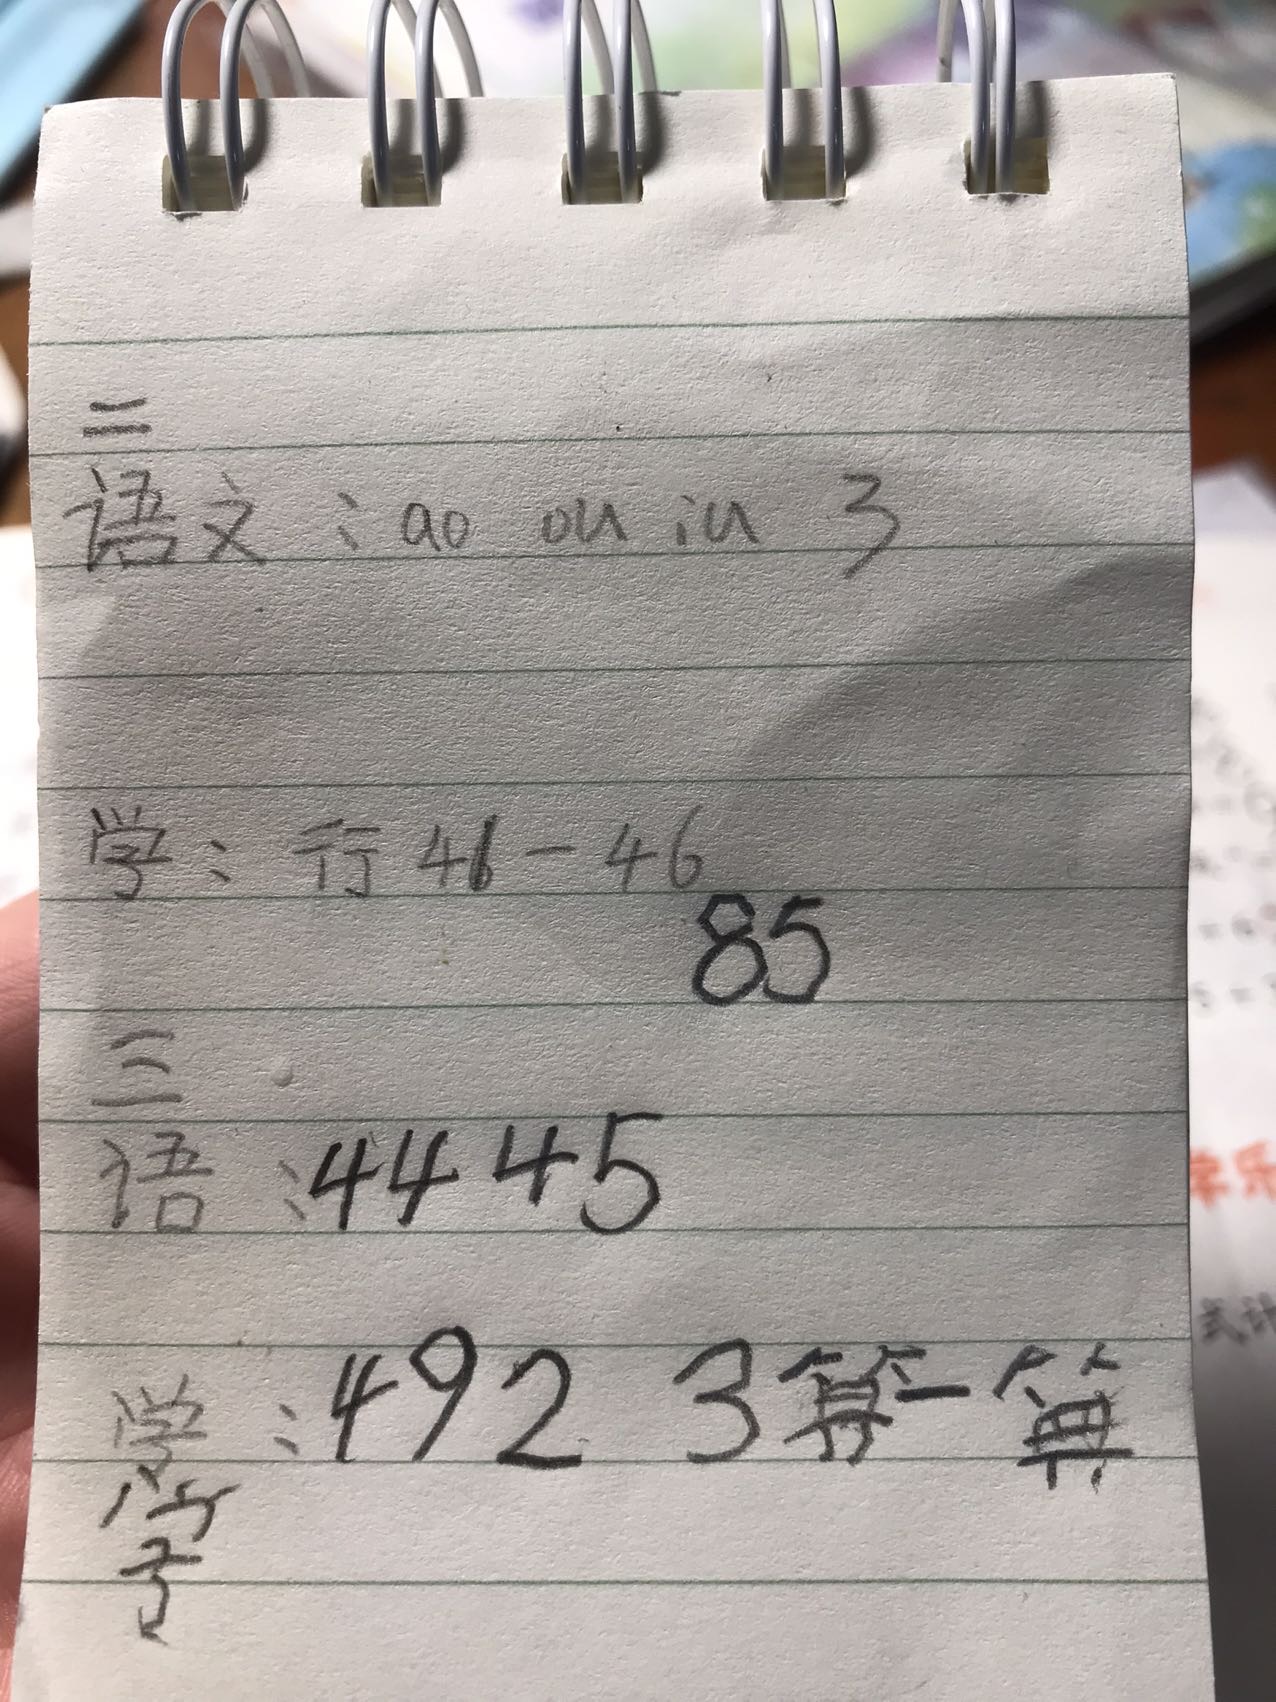 二
语文：ao ou iu 3
学：行 41-46
85
三
语：44 45
学：492 3算一算
学